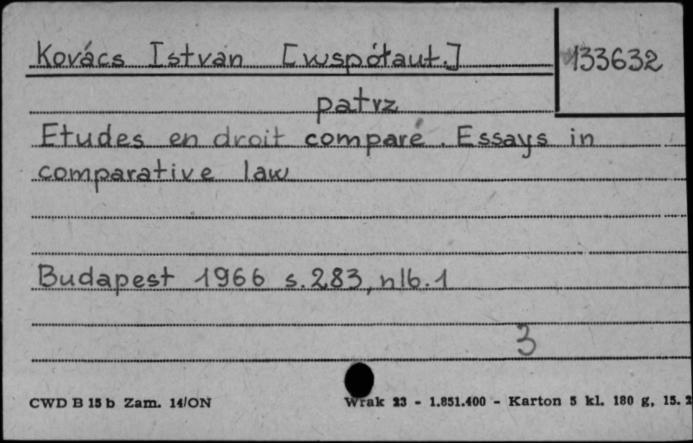 Kovács Istvan [współaut.] 133632
patrz
Etudes en droit comparé. Essays in
comparative law
Budapest 1966 s.283, nlb.1
3
CWD B 15 b Zam. 14/ON Wrak 23 - 1.851.400 - Karton 5 kl. 180 g, 15. 2